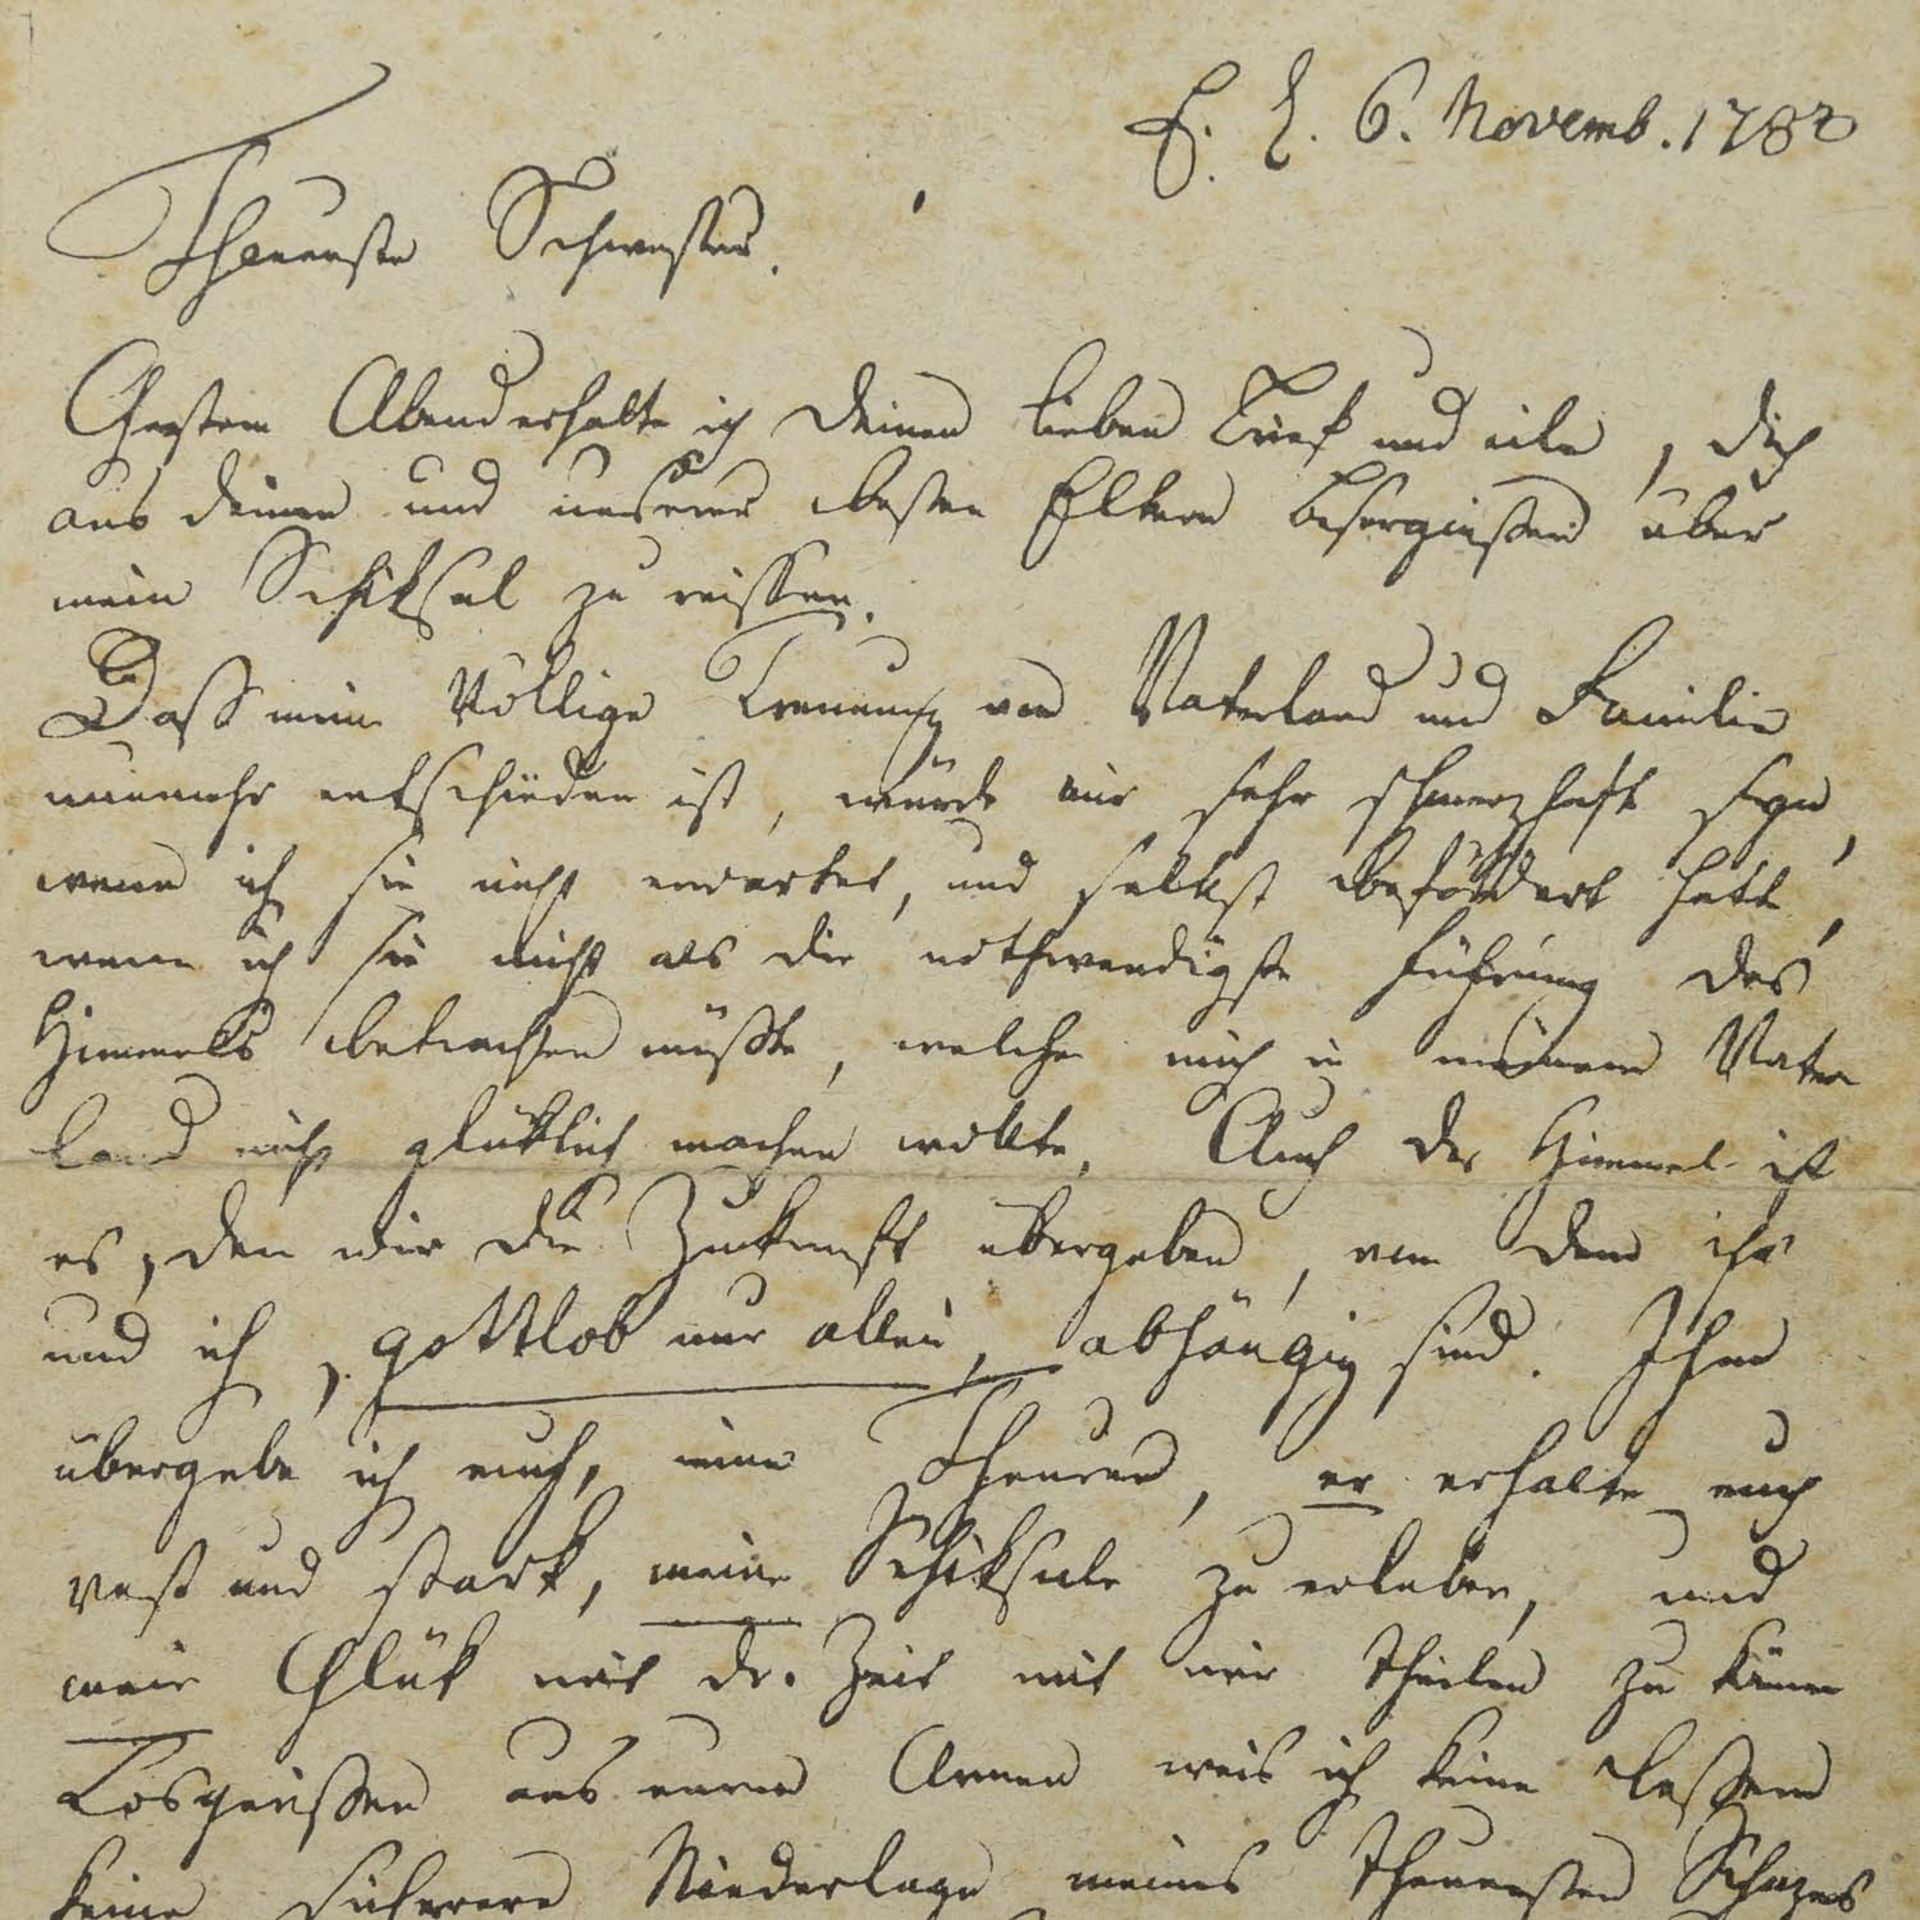 E. L. 6. Novemb. 1782
Theuerste Schwester.
Gestern Abend erhalte ich deinen lieben Brief und eile, dich
aus deinen und unserer besten Eltern Besorgnissen über
mein Schiksal zu reissen.
Daß meine völlige Trennung von Vaterland und Familie
nunmehr entschieden ist, würde mir sehr schmerzhaft seyn,
wenn ich sie nicht erwartet, und selbst befördert hätte,
wenn ich sie nicht als die nothwendigste Führung des
Himmels betrachten müßte, welcher mich in meinem Vater
land nicht glüklich machen wollte. Auch der Himmel ist
es, dem wir die Zukunft übergeben, von dem ihr
und ich, gottlob nur allein, abhängig sind. Ihm
übergebe ich euch, meine Theuren, er erhalte euch
vest und stark, meine Schiksale zu erleben, und
mein Glük mit der Zeit mit mir theilen zu können
Losgerissen aus euren Armen weis ich keine bessere
keine sicherere Niederlage meines theuersten Schazes